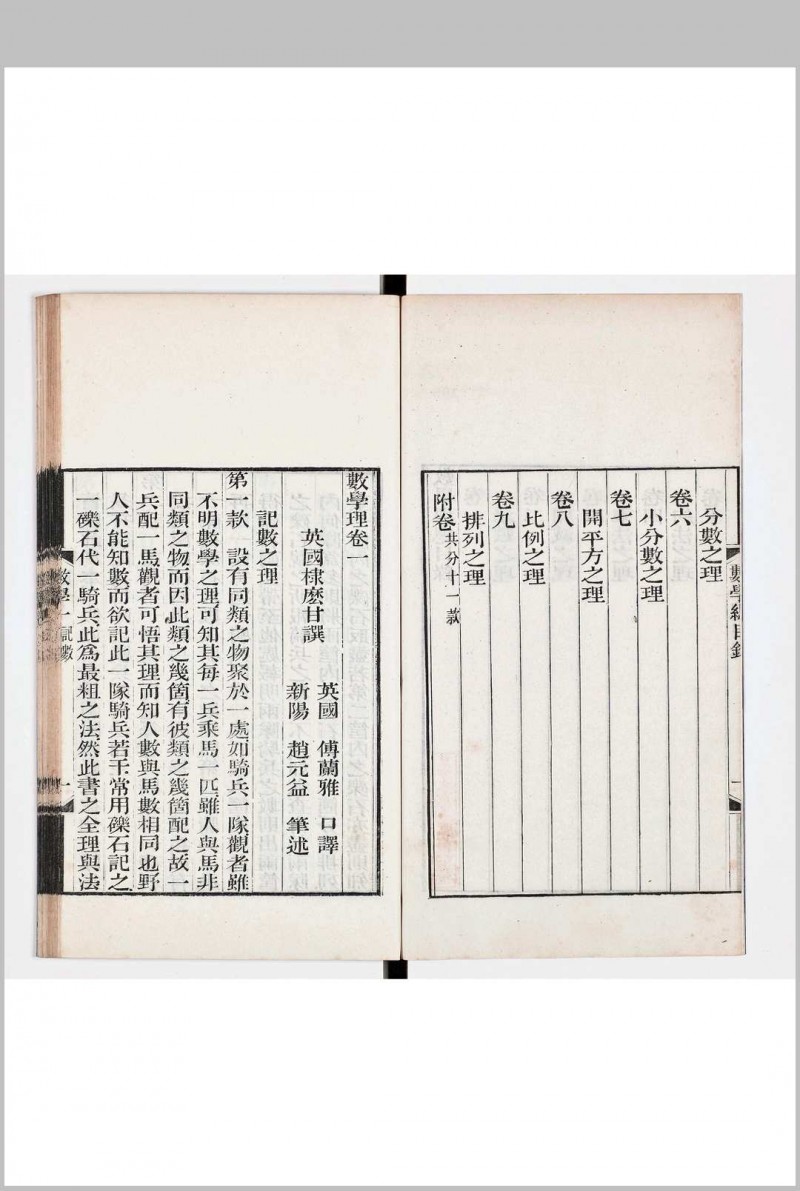 分數之理
卷六
小分數之理
卷七
開平方之理
卷八
比例之理
卷九
排列之理
附卷共分十一款
數學理卷一
英國棣麽甘譔
英國 傅蘭雅 口譯
新陽 趙元益 筆述
記數之理
第一款 設有同類之物聚於一處如騎兵一隊觀者雖
不明數學之理可知其每一兵乘馬一匹雖人與馬非
同類之物而因此類之幾箇有彼類之幾箇配之故一
兵配一馬觀者可悟其理而知人數與馬數相同也野
人不能知數而欲記此一隊騎兵若干常用礫石記之
一礫石代一騎兵此爲最粗之法然此書之全理與法
數學一 記數
一